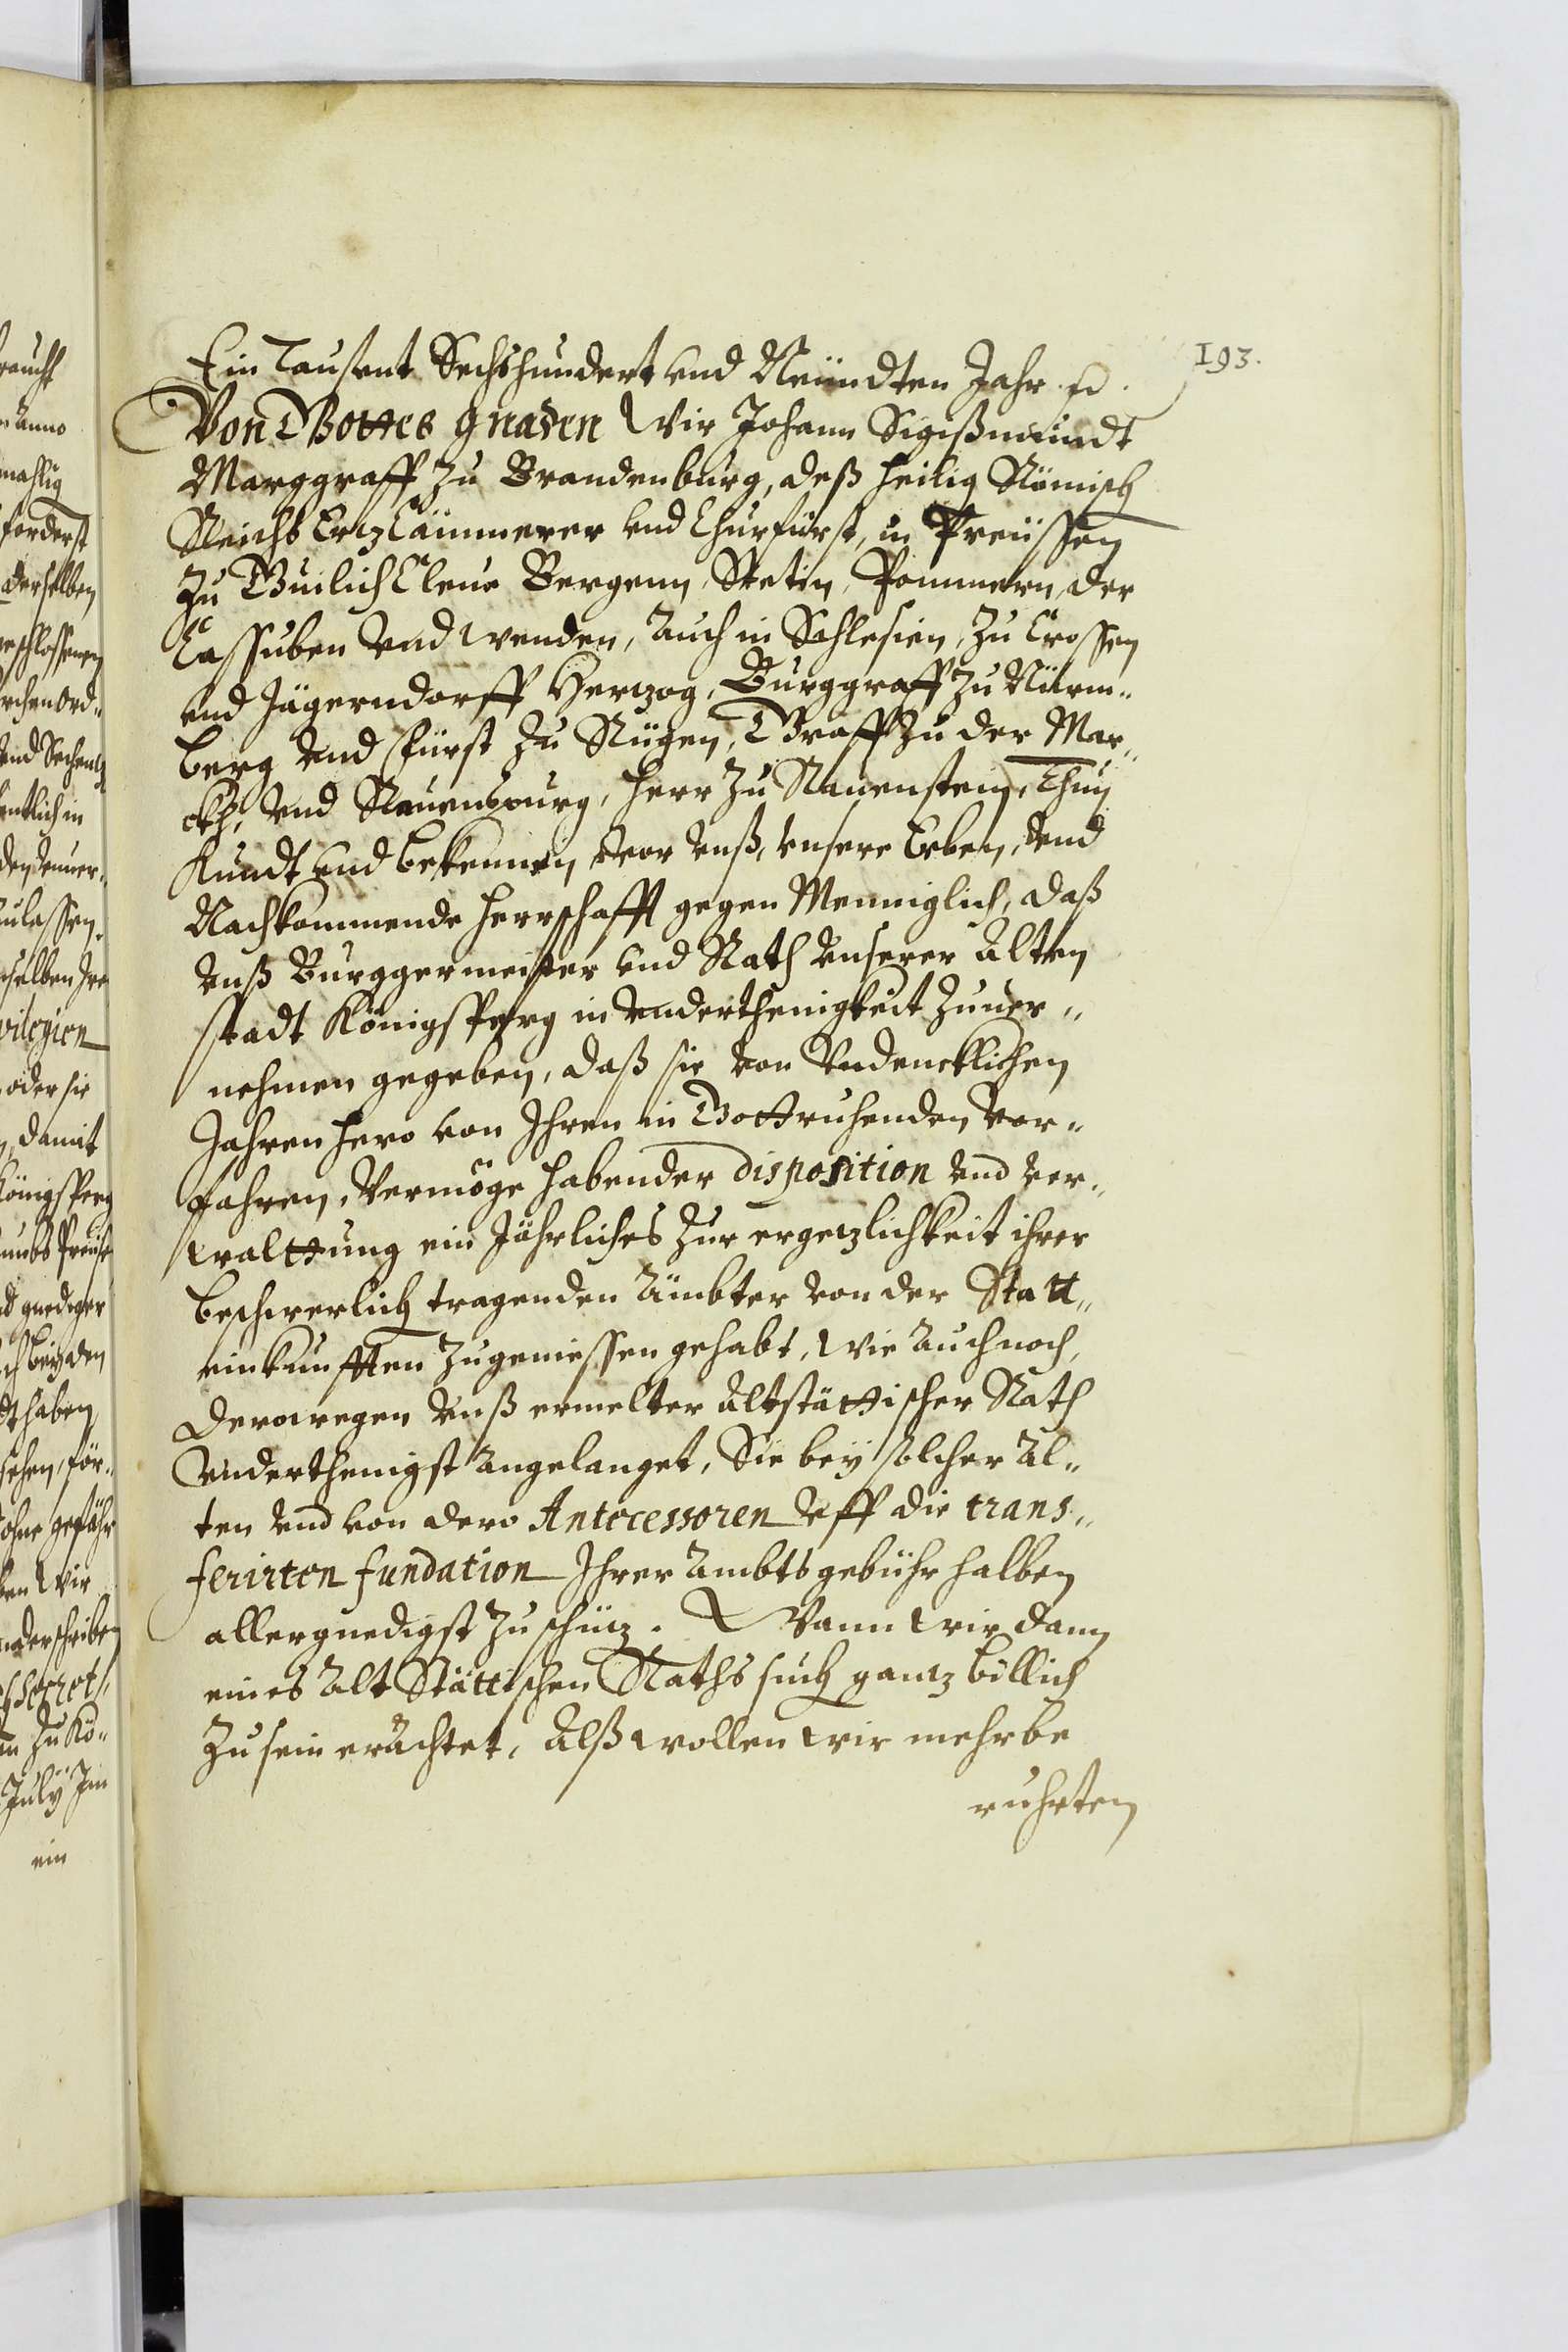 193.
Ein Tausent Sechshundert vnd Neundten Jahr
Von Gottes gnaden Wir Johann Sigißmundt
Marggraff zu Brandenburg, deß heilig Römisch
Reichs Ertz Cämmerer vnd Churfürst, in Preüssen
zu Guilich Cleue Bergenn, Stetin, Pommern, der
Cassuben vnd wenden, Auch in Schlesien, zu Crossen
vnd Jägerndorff Hertzog, Burggraff zu Nürm„
berg vnd Fürst zu Rügen, Graff zu der Mar„
ckh, vnd Rauensburg, herr zu Rauenstein, Thun
Kundt vnd bekennen vor vnß, vnsere Erben, vnd
Nachkommende herrschafft gegen Menniglich, daß
vnß Burggermeister vnd Rath vnserer Alten
stadt Königsperg in vnderthenigkeit zuuer„
nehmen gegeben, daß sie von Vndencklichen
Jahren hero von Ihren in Gott ruhenden Vor„
fahren, Vermöge habender disposition vnd ver„
walttung ein Jährliches zur ergetzlichkeit ihrer
beschwerlich tragenden Ämbter von der Statt„
einkunfften zugeniessen gehabt, Wie auch noch,
Derowegen vnß ermelter Altstättischer Rath
Vnderthenigst angelanget, Sie bey solcher Al„
ten vnd von dero Antecessoren vff die trans„
ferirten fundation Ihrer Ambts gebühr halben
allergnedigst zu schütz. Wann wir dann
eines Alt Stättischen Raths such gantz billich
zu sein erachtet, Alß wollen wir mehr be
ruhrten